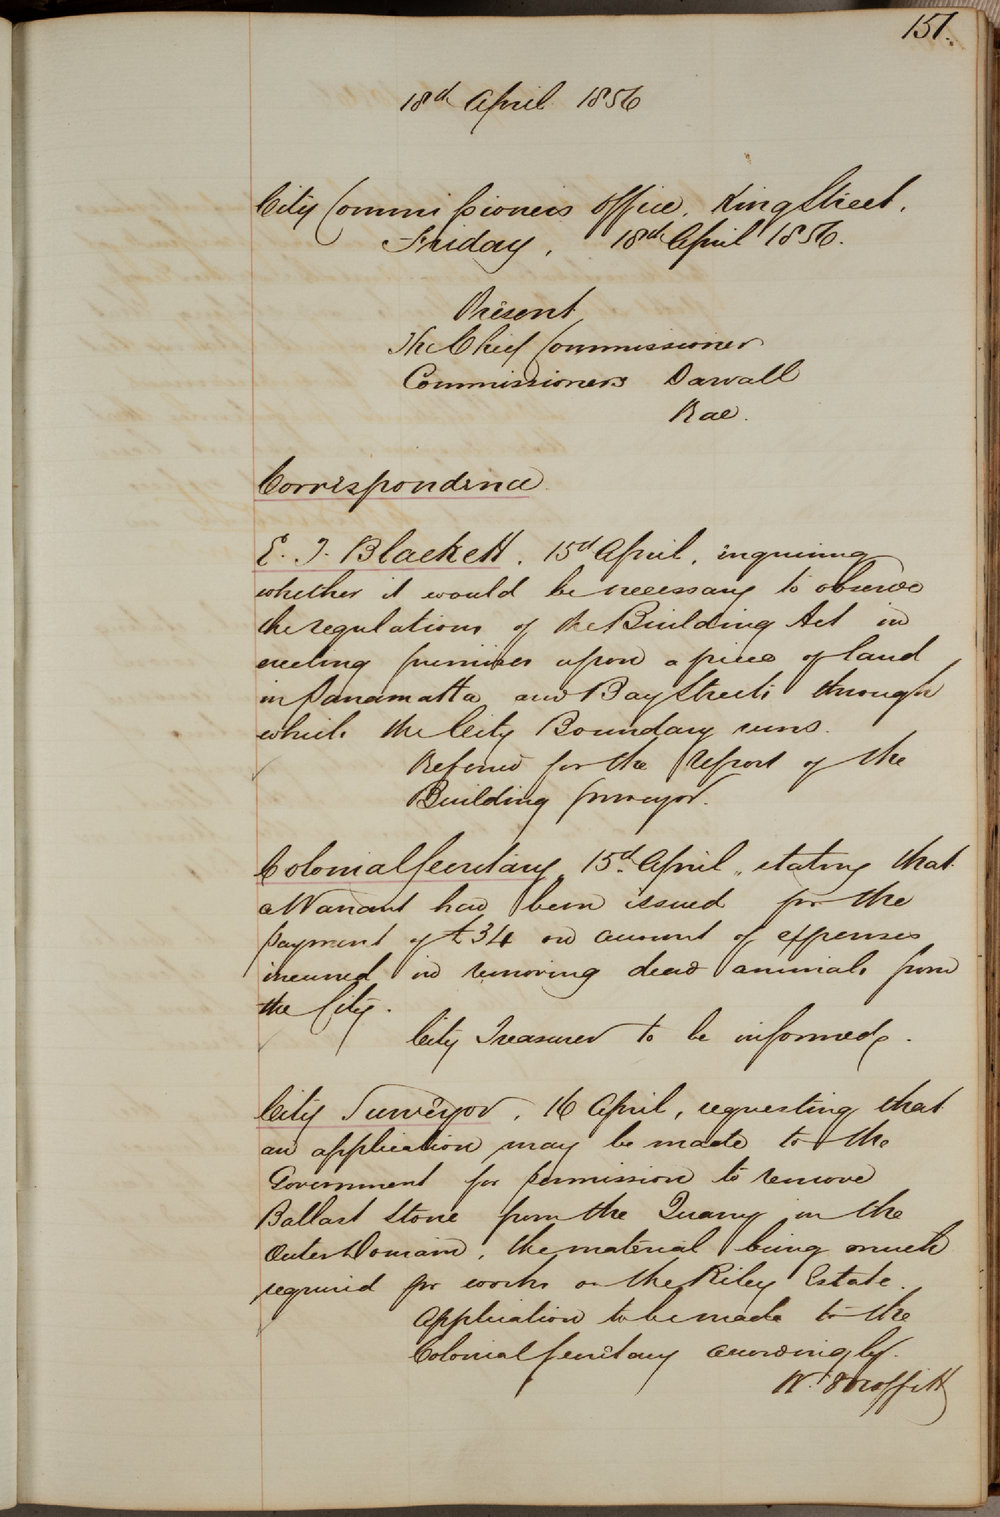 157.
18th April 1856
City Commissioners Office, King Street,
Friday, 18th April 1856.
Present
The Chief Commissioner
Commissioners Darvall
Rae.
Correspondence
E. T. Blackett, 15th April, inquiring
whether it would be necessary to observe
the regulations of the Building Act in
erecting premises upon a piece of land
in Parramatta and Bay Streets through
which the City Boundary runs.
Referred for the Report of the
Building Surveyor.
Colonial Secretary, 15th April, stating that
a Warrant had been issued for the
payment of £34 on account of expenses
incurred in removing dead animals from
the City.
City Treasurer to be informed.
City Surveyor, 16 April, requesting that
an application may be made to the
Government for permission to remove
Ballast Stone from the Quarry in the
Outer Domain, the material being much
required for works on the Riley Estate.
Application to be made to the
Colonial Secretary accordingly.
W. Moffitt